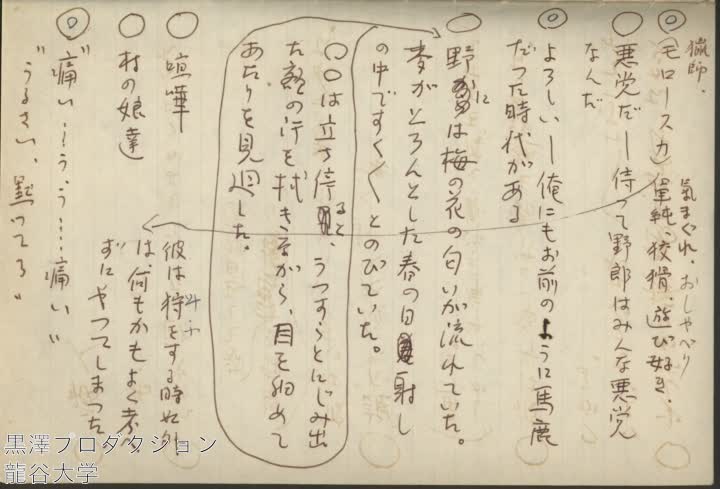 ◎
猟師、
(モロースカ) 單純、狡猾、遊び好き、
氣まぐれ、おしゃべり
○
悪党だ―侍って野郎はみんな悪党
なんだ
◎
よろしい―俺にもお前のように馬鹿
だった時代がある
○
野には梅の花の匂いが流れていた。
麦がとろんとした春の日射し
の中ですく〱とのびていた。
〇〇は立ち停ると、うっすらとにじみ出
た額の汗を拭きながら、目を細めて
あたりを見廻した。
○
喧嘩
彼は狩をする時以外
は、何もかもよく考へ
ずにやってしまった
○
村の娘達
◎
"痛い……う、う……痛い"
"うるさい、黙ってろ"
黒澤プロダクション
龍谷大学